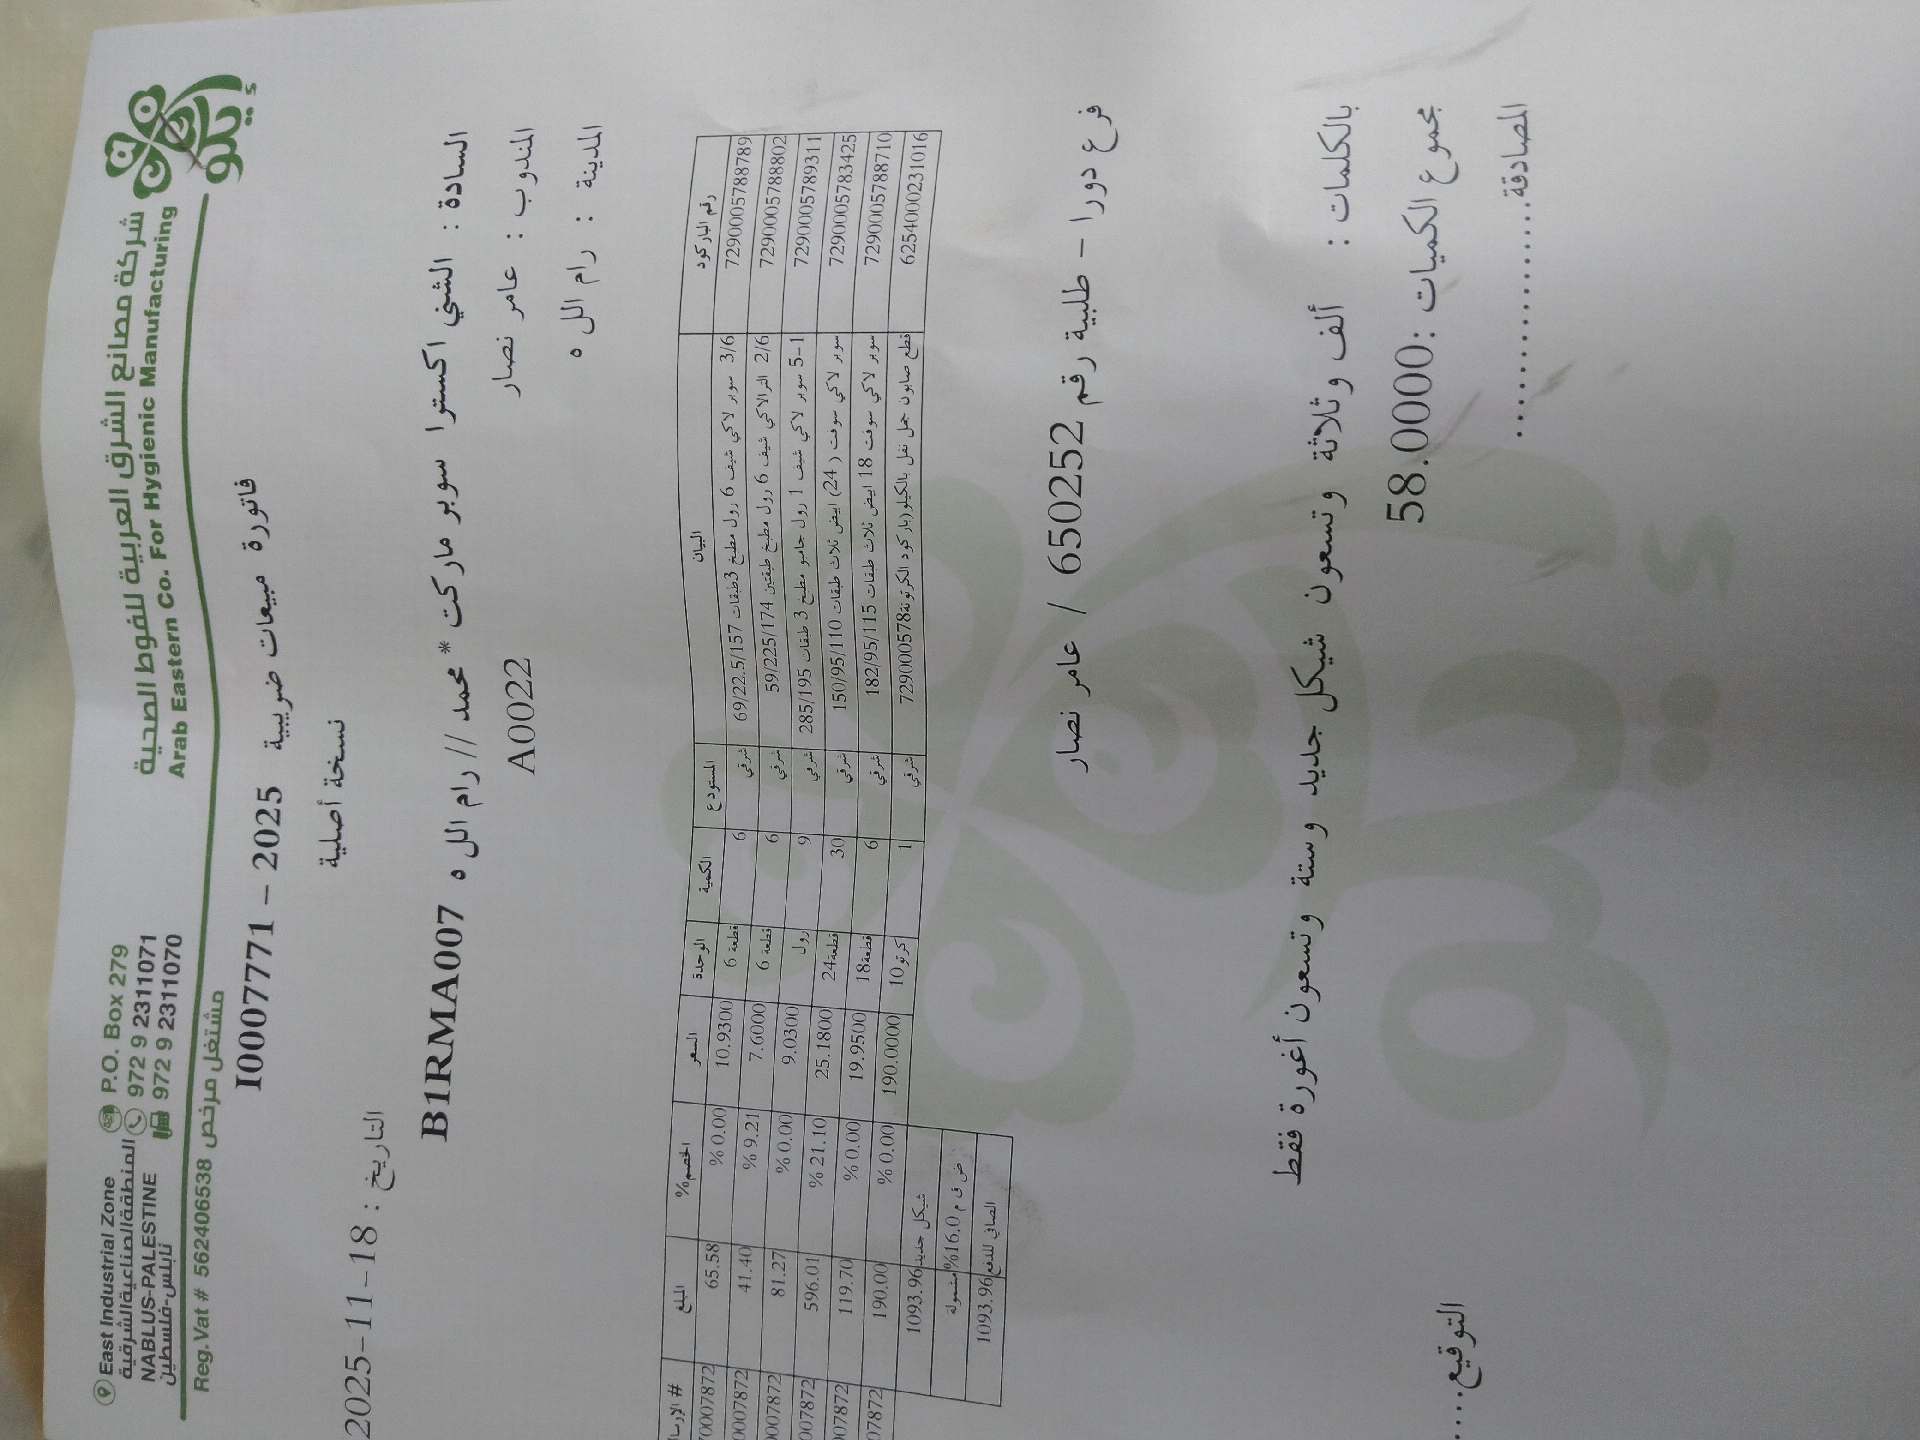 إيكو
شركة مصانع الشرق العربية للفوط الصحية
Arab Eastern Co. For Hygienic Manufacturing
P.O. Box 279
972 9 2311071
972 9 2311070
East Industrial Zone
المنطقة الصناعية الشرقية
NABLUS-PALESTINE
نابلس-فلسطين
Reg.Vat # 562406538 مشتغل مرخص
فاتورة مبيعات ضريبية I0007771 – 2025
نسخة أصلية
التاريخ : 2025-11-18
السادة : الشني اكسترا سوبر ماركت *محمد // رام الل ه B1RMA007
المندوب : عامر نصار A0022
المدينة : رام الل ه
رقم الباركود البيان المستودع الكمية الوحدة السعر الخصم% المبلغ # الإرسا
7290005788789 3/6 سوبر لاكي شيف 6 رول مطبخ 3طبقات 69/22.5/157 شرقي 6 قطعة 6 10.9300 % 0.00 65.58 0007872
7290005788802 2/6 الترالاكي شيف 6 رول مطبخ طبقتين 59/225/174 شرقي 6 قطعة 6 7.6000 % 9.21 41.40 0007872
7290005789311 5-1 سوبر لاكي شيف 1 رول جامبو مطبخ 3 طبقات 285/195 شرقي 9 رول 9.0300 % 0.00 81.27 007872
7290005783425 سوبر لاكي سوفت ( 24) ابيض ثلاث طبقات 150/95/110 شرقي 30 قطعة24 25.1800 % 21.10 596.01 007872
7290005788710 سوبر لاكي سوفت 18 ابيض ثلاث طبقات 182/95/115 شرقي 6 قطعة18 19.9500 % 0.00 119.70 07872
6254000231016 قطع صابون جمل نفل بالكيلو(باركود الكرتونة729000578 شرقي 1 كرتو10 190.0000 % 0.00 190.00 07872
شيكل جديد 1093.96
ض ق م 16.0% مشمولة
الصافي للدفع 1093.96
فرع دورا – طلبية رقم 650252 / عامر نصار
بالكلمات : ألف وثلاثة وتسعون شيكل جديد وستة وتسعون أغورة فقط
مجموع الكميات :58.0000
المصادقة.......................
التوقيع.....
إيكو